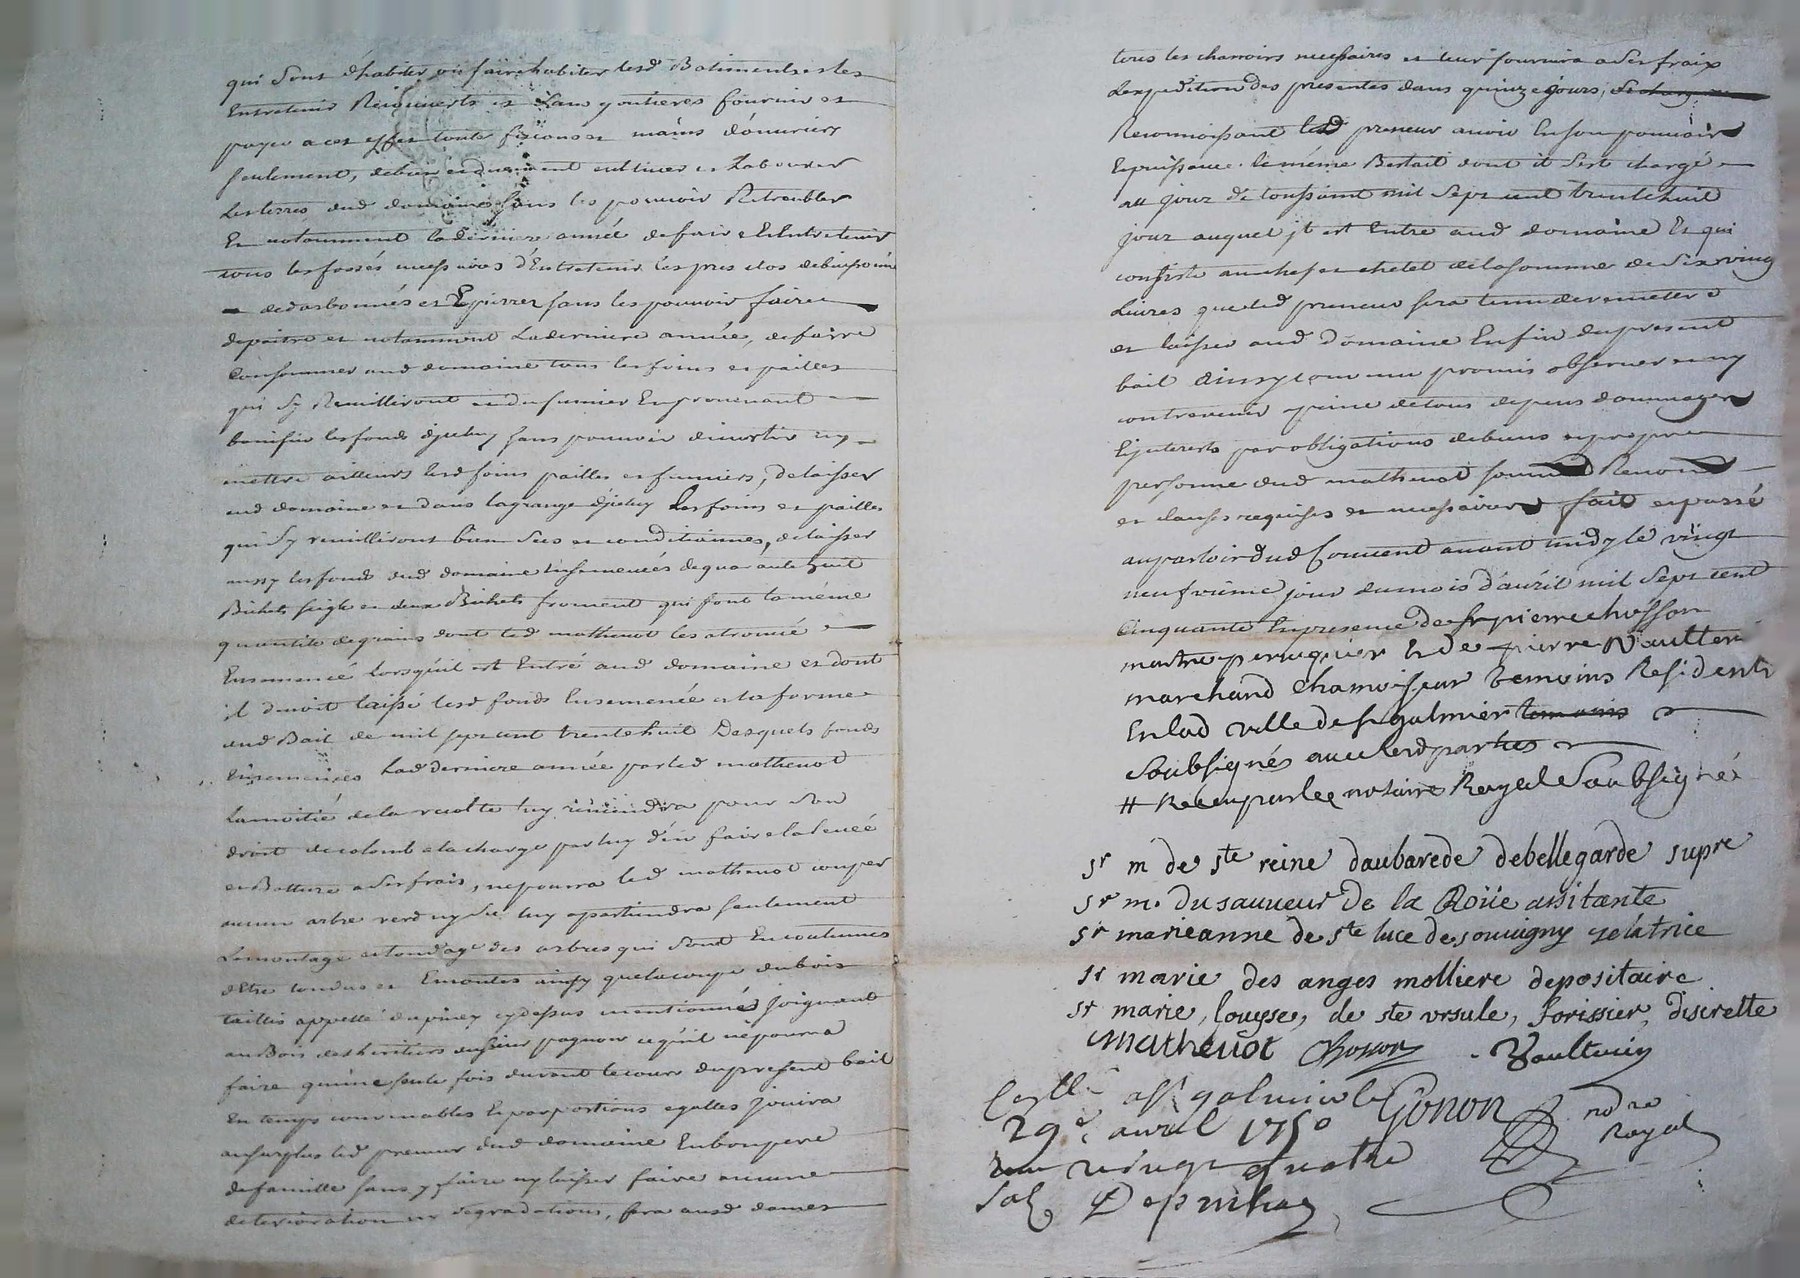 qui sont d'habiter ou faire habiter lesd Batiments et les
Entretenir Recouverts et Laur goutieres fournir et
payer a cet effet toutte façons et mains d'ouvriers
seulement, de bien et duement cultiver et Labourer
Les terres dud domaine sans les pouvoir Retroubler
Et notamment la derniere année de faire et Entretenir
tous les fossés necessaires d'Entretenir les pres clos de buissons
dedarbonnés et Epierrez sans les pouvoir faire
depaitre et notamment La derniere année, de faire
Consommer aud domaine tous les foins et pailles
qui sy Reuilliront et du fumier En provenant
bonifier les fonds djceluy sans pouvoir divertir ny
mettre ailleurs lesd foins pailles et fumiers, de laisser
aud domaine et dans la grange djceluy Les foins et pailles
qui sy reuilliront bien secs et conditionnes, de laisser
aussy les fonds dud domaine Ensemencés de quarante huit
Bichets seigle et deux Bichets froment qui font la même
quantité de grains dont led mathevot les a trouvé
Ensemencé lorsqu'il est Entré aud domaine et dont
il devoit laisser lesd fonds Ensemencé a la forme
dud Bail de mil sept cent trente huit Desquels fonds
Ensemencés Lad derniere année par led mathevot
La moitié de la recolte luy reviendra pour son
droit de colonb a la charge par luy d'en faire la levée
et Batture a ses frais, ne pourra led mathevot couper
aucun arbre verd ny sec luy apartiendra seulement
Lemontage et tondage des arbres qui sont En coutumes
d'Etre tondus et Emontes ainsy que la coupe du bois
taillis appellé du piney cy dessus mentionnés joignant
au Bois des heritiers du sieur pagnon ce qu'il ne pourra
faire qu'une seule fois durant le cour du present bail
En temps convenables Et par portions egalles jouira
au surplus led preneur dud domaine En bon pere
de famille sans y faire ny laisser faire aucune
deterioration ny degradations, fera ausd dames
tous les charrois necessaires et leur fournira a ses frais
L'expedition des presentes dans quinze jours,
Reconnoissant led preneur avoir En son pouvoir
Et puissance le même Bestail dont il s'est chargé
au jour de toussaint mil sept cent trente huit
jour auquel jl est Entré aud domaine Et qui
consiste au chef et chetel de la somme de six vingt
Livres que led preneur sera tenu de remettre
et laisser aud domaine En fin du present
bail Ainsy convenu promis observer et ny
contrevenir a peine de tous depens dommages
Et jnterests par obligations de biens et propre
personne dud mathevot soumis Renoncé
et clauses requises et necessaires fait et passé
au parloir dud Couvent avant midy le vingt
neufvieme jour du mois d'avril mil sept cent
Cinquante En presence de sr pierre chosson
maitre perruquier Et de pierre Vaulterin
marchand chamoiseur temoins Residents
En lad ville de st galmier temoins
Soubsignés avec lesd parties
# Receu par le notaire Royal Soubsigné
sr m de ste reine daubarede debellegarde supre
sr m. du sauueur De la Roüe assitante
sr marieanne de ste luce de souuigny zelatrice
sr marie des anges molliere depositaire
sr marie, louyse, de ste ursule, forissier, discrette
Mathevot Chosson Vaulterin
Contllé a st galmier le Gonon nore
29e avril 1750 Royal
Reçu vingt quatre
sols Depinhac